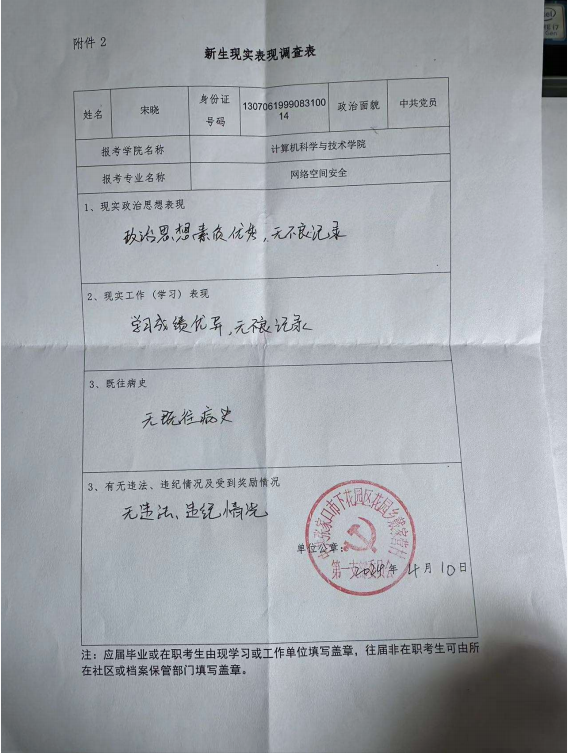 附件 2
新生现实表现调查表
姓名
宋晓
身份证
号码
1307061999083100
14
政治面貌
中共党员
报考学院名称
计算机科学与技术学院
报考专业名称
网络空间安全
1、现实政治思想表现
政治思想素质优秀,无不良记录
2、现实工作（学习）表现
学习成绩优异,无不良记录
3、既往病史
无既往病史
3、有无违法、违纪情况及受到奖励情况
无违法、违纪情况
张家口市下花园区花园乡
第一支部委员会
单位公章：
2024年 4月 10日
注：应届毕业或在职考生由现学习或工作单位填写盖章，往届非在职考生可由所
在社区或档案保管部门填写盖章。